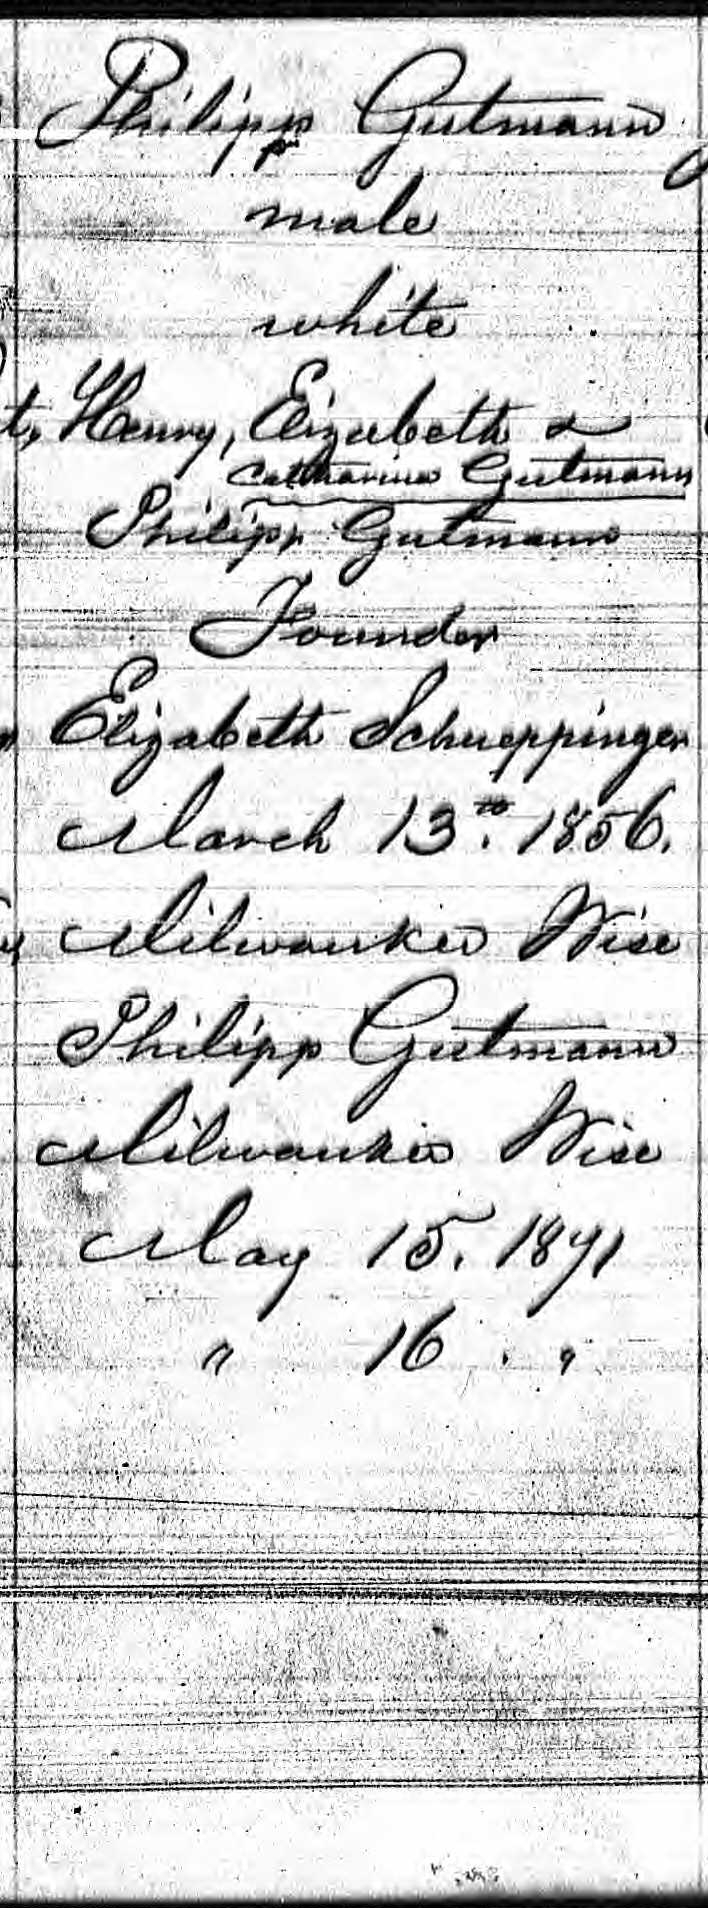 Philipp Gutmann
male
white
Henry, Elizabeth &
Catharina Gutmann
Philipp Gutmann
Founder
Elizabeth Schueppinger
March 13th. 1856.
Milwaukee Wisc
Philipp Gutmann
Milwaukee Wisc
May 15. 1891
" 16 . "